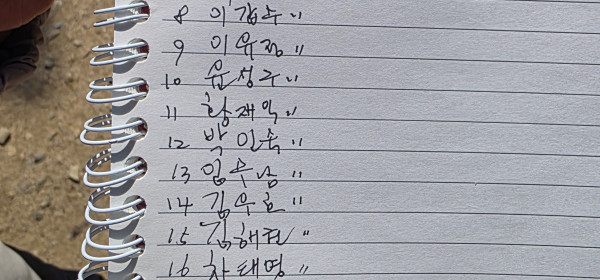 8 이갑수 〃
9 이유정 〃
10 윤정구 〃
11 황재익 〃
12 박인숙 〃
13 임수남 〃
14 김우호 〃
15 김해련 〃
16 차태영 〃